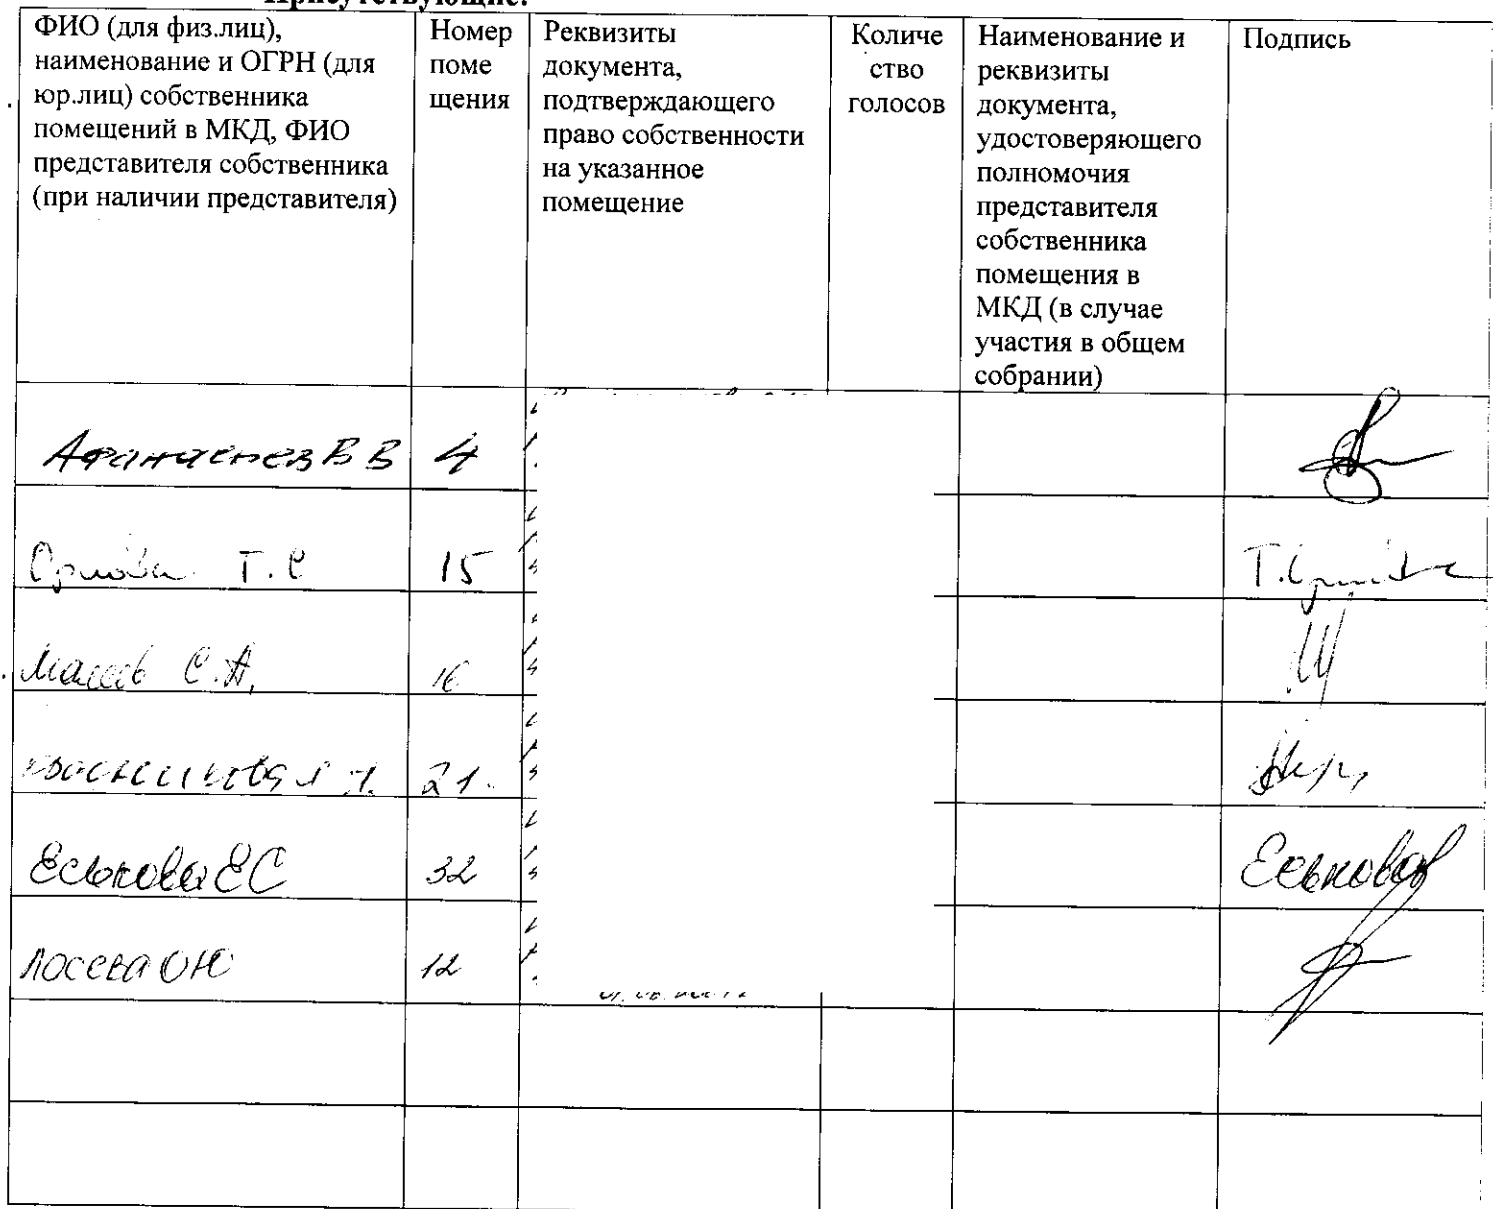 Присутствующие:
ФИО (для физ.лиц),
наименование и ОГРН (для
юр.лиц) собственника
помещений в МКД, ФИО
представителя собственника
(при наличии представителя)
Номер
поме
щения
Реквизиты
документа,
подтверждающего
право собственности
на указанное
помещение
Количе
ство
голосов
Наименование и
реквизиты
документа,
удостоверяющего
полномочия
представителя
собственника
помещения в
МКД (в случае
участия в общем
собрании)
Подпись
В В 4
Орлова Т.С 15 Т.Орлова
С.А. 16
21.
Еськова ЕС 32 Еськова
Лосева ОЮ 12